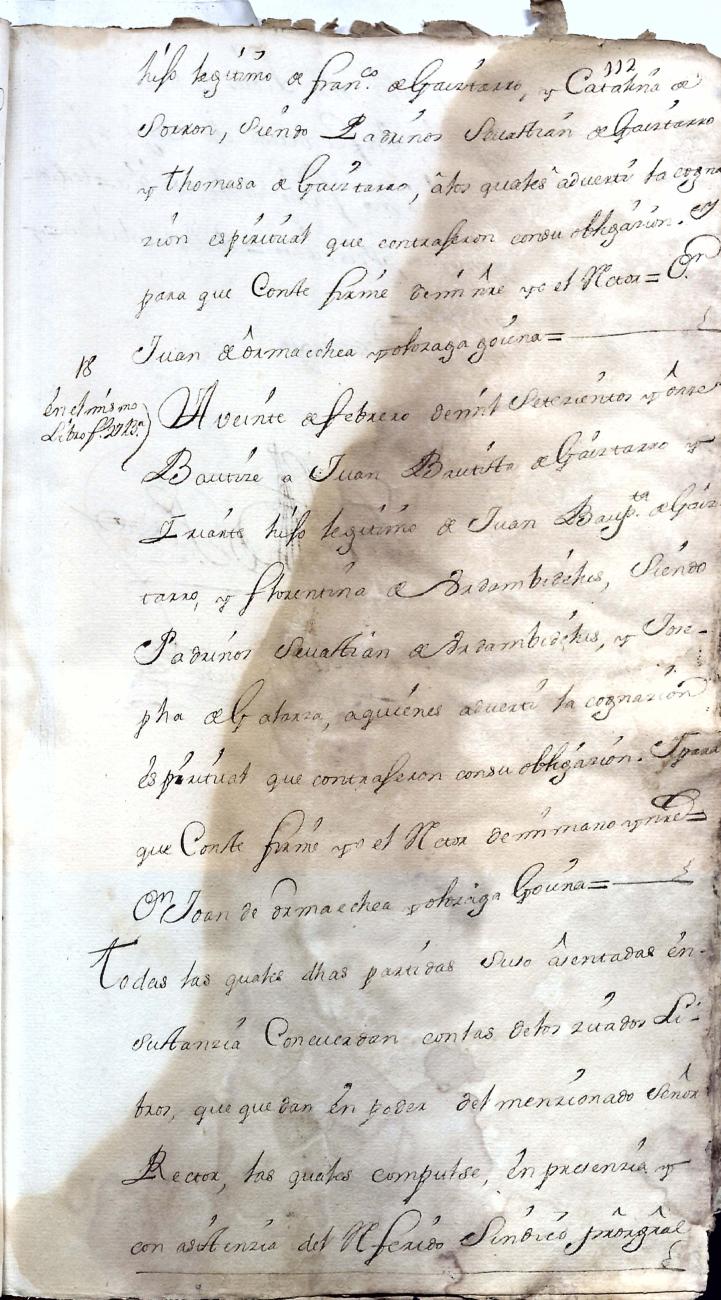 112
hijo legitimo de fran.co de Gaiztarro, y Catalina de
Sorron, siendo Padrinos Sevastian de Gaiztarro
y thomasa de Gaiztarro, â los quales advertí la cogna
zion espiritual que contrajeron con su obligazion. Y
para que Conste firmé de mi nrê yo el Rector= Dn
Juan de ôrmaechea y olozaga goiina=
18
en el mismo
Libro f.
A veinte de febrero de mil Setezientos y ônze
Bautize a Juan Bautista de Gaiztarro y
Iriarte hijo legitimo de Juan Baup.ta de Gaiz
tarro, y florentina de Ardambidehis, Siendo
Padrinos Sevastian de Ardambidehis, y Jose-
pha de Galarza, aquienes advertí la cognazion
espiritual que contrajeron con su obligazion. Y para
que Conste firmé yo el Rector de mi mano y nrê=
Dn Joan de ôrmaechea y olozaga Goiina=
todas las quales dhas partidas suso âsentadas en-
sustanzia Concuerdan con las de los zitados Li-
bros, que quedan en poder del menzionado Señor
Rector, las quales compulse, en presenzia y
con asistenzia del Referido Sindico prôr grâl